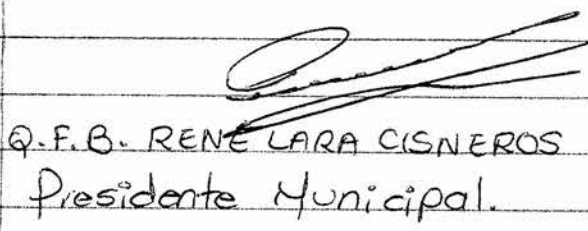 Q.F.B. RENE LARA CISNEROS
Presidente Municipal.